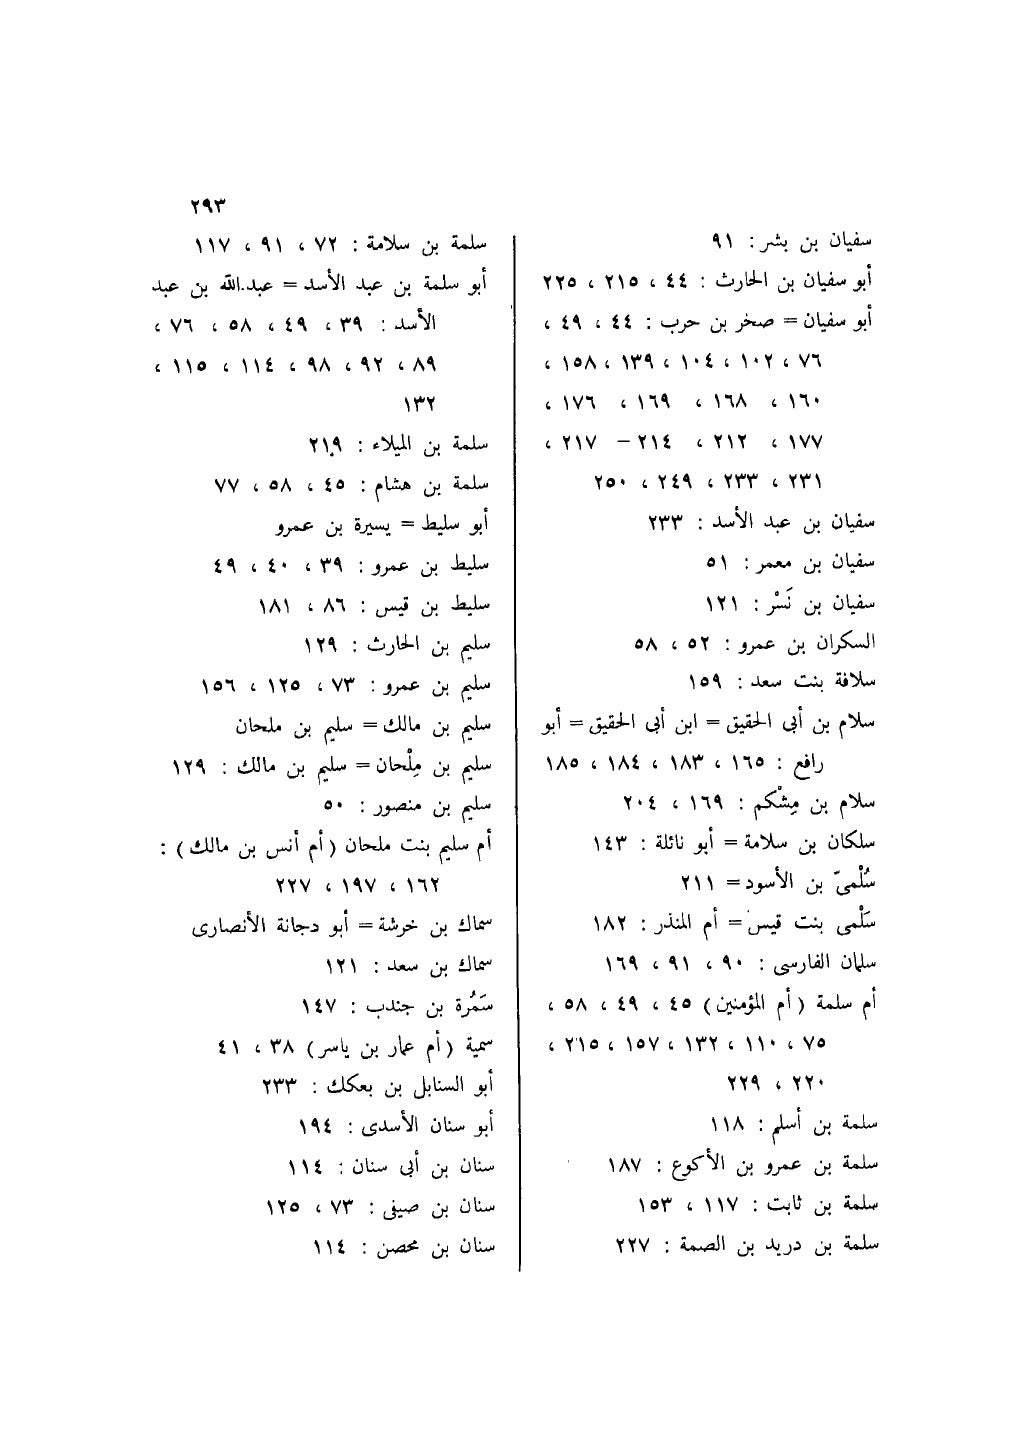 ٢٩٣
سفيان بن بشر : ٩١
أبو سفيان بن الحارث : ٤٤ ، ٢١٥ ، ٢٢٥
أبو سفيان = صخر بن حرب : ٤٤ ، ٤٩ ،
٧٦ ، ١٠٢ ، ١٠٤ ، ١٣٩ ، ١٥٨ ،
١٦٠ ، ١٦٨ ، ١٦٩ ، ١٧٦ ،
١٧٧ ، ٢١٢ ، ٢١٤ – ٢١٧ ،
٢٣١ ، ٢٣٣ ، ٢٤٩ ، ٢٥٠
سفيان بن عبد الأسد : ٢٣٣
سفيان بن معمر : ٥١
سفيان بن نَسْر : ١٢١
السكران بن عمرو : ٥٢ ، ٥٨
سلافة بنت سعد : ١٥٩
سلام بن أبى الحقيق = ابن أبى الحقيق = أبو
رافع : ١٦٥ ، ١٨٣ ، ١٨٤ ، ١٨٥
سلام بن مِشْكم : ١٦٩ ، ٢٠٤
سلكان بن سلامة = أبو نائلة : ١٤٣
سُلْمىّ بن الأسود = ٢١١
سَلْمى بنت قيس = أم المنذر : ١٨٢
سلمان الفارسى : ٩٠ ، ٩١ ، ١٦٩
أم سلمة ( أم المؤمنين ) ٤٥ ، ٤٩ ، ٥٨ ،
٧٥ ، ١١٠ ، ١٣٢ ، ١٥٧ ، ٢١٥ ،
٢٢٠ ، ٢٢٩
سلمة بن أسلم : ١١٨
سلمة بن عمرو بن الأكوع : ١٨٧
سلمة بن ثابت : ١١٧ ، ١٥٣
سلمة بن دريد بن الصمة : ٢٢٧
سلمة بن سلامة : ٧٢ ، ٩١ ، ١١٧
أبو سلمة بن عبد الأسد = عبد الله بن عبد
الأسد : ٣٩ ، ٤٩ ، ٥٨ ، ٧٦ ،
٨٩ ، ٩٢ ، ٩٨ ، ١١٤ ، ١١٥ ،
١٣٢
سلمة بن الميلاء : ٢١٩
سلمة بن هشام : ٤٥ ، ٥٨ ، ٧٧
أبو سليط = يسيرة بن عمرو
سليط بن عمرو : ٣٩ ، ٤٠ ، ٤٩
سليط بن قيس : ٨٦ ، ١٨١
سليم بن الحارث : ١٢٩
سليم بن عمرو : ٧٣ ، ١٢٥ ، ١٥٦
سليم بن مالك = سليم بن ملحان
سليم بن مِلْحان = سليم بن مالك : ١٢٩
سليم بن منصور : ٥٠
أم سليم بنت ملحان ( أم أنس بن مالك ) :
١٦٢ ، ١٩٧ ، ٢٢٧
سماك بن خرشة = أبو دجانة الأنصارى
سماك بن سعد : ١٢١
سَمُرة بن جندب : ١٤٧
سمية ( أم عمار بن ياسر ) ٣٨ ، ٤١
أبو السنابل بن بعكك : ٢٣٣
أبو سنان الأسدى : ١٩٤
سنان بن أبى سنان : ١١٤
سنان بن صيفى : ٧٣ ، ١٢٥
سنان بن محصن : ١١٤